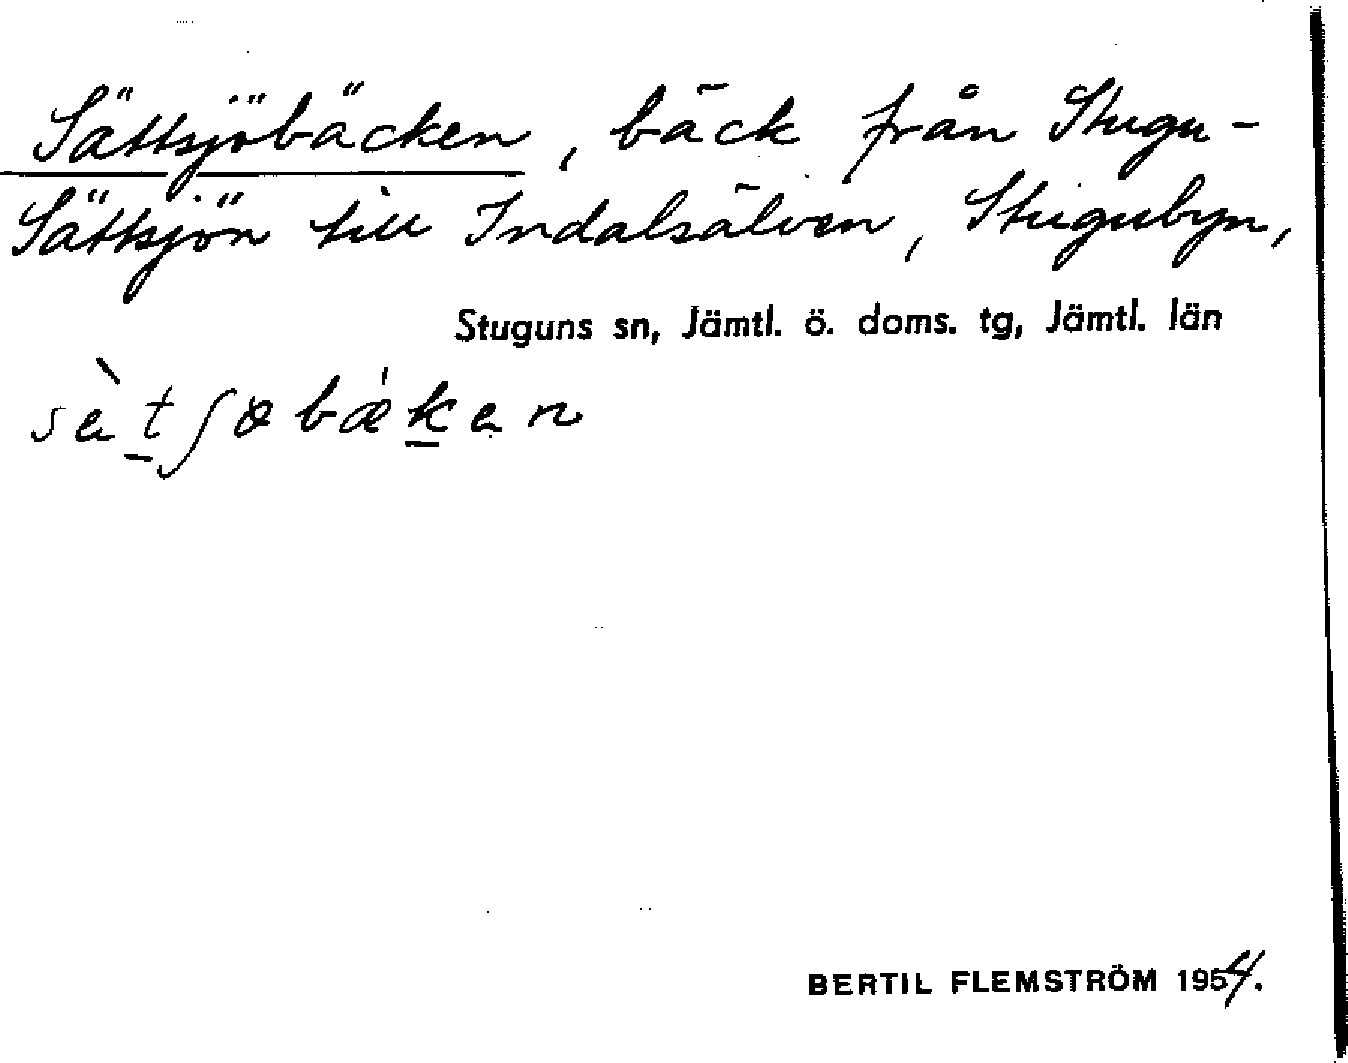 Sättsjöbäcken, bäck från Stugu-
Sättsjön till Indalsälven, Stugubyn,
Stuguns sn, Jämtl. ö. doms. tg, Jämtl. län
sètʃøbǽken
BERTIL FLEMSTRÖM 1954.